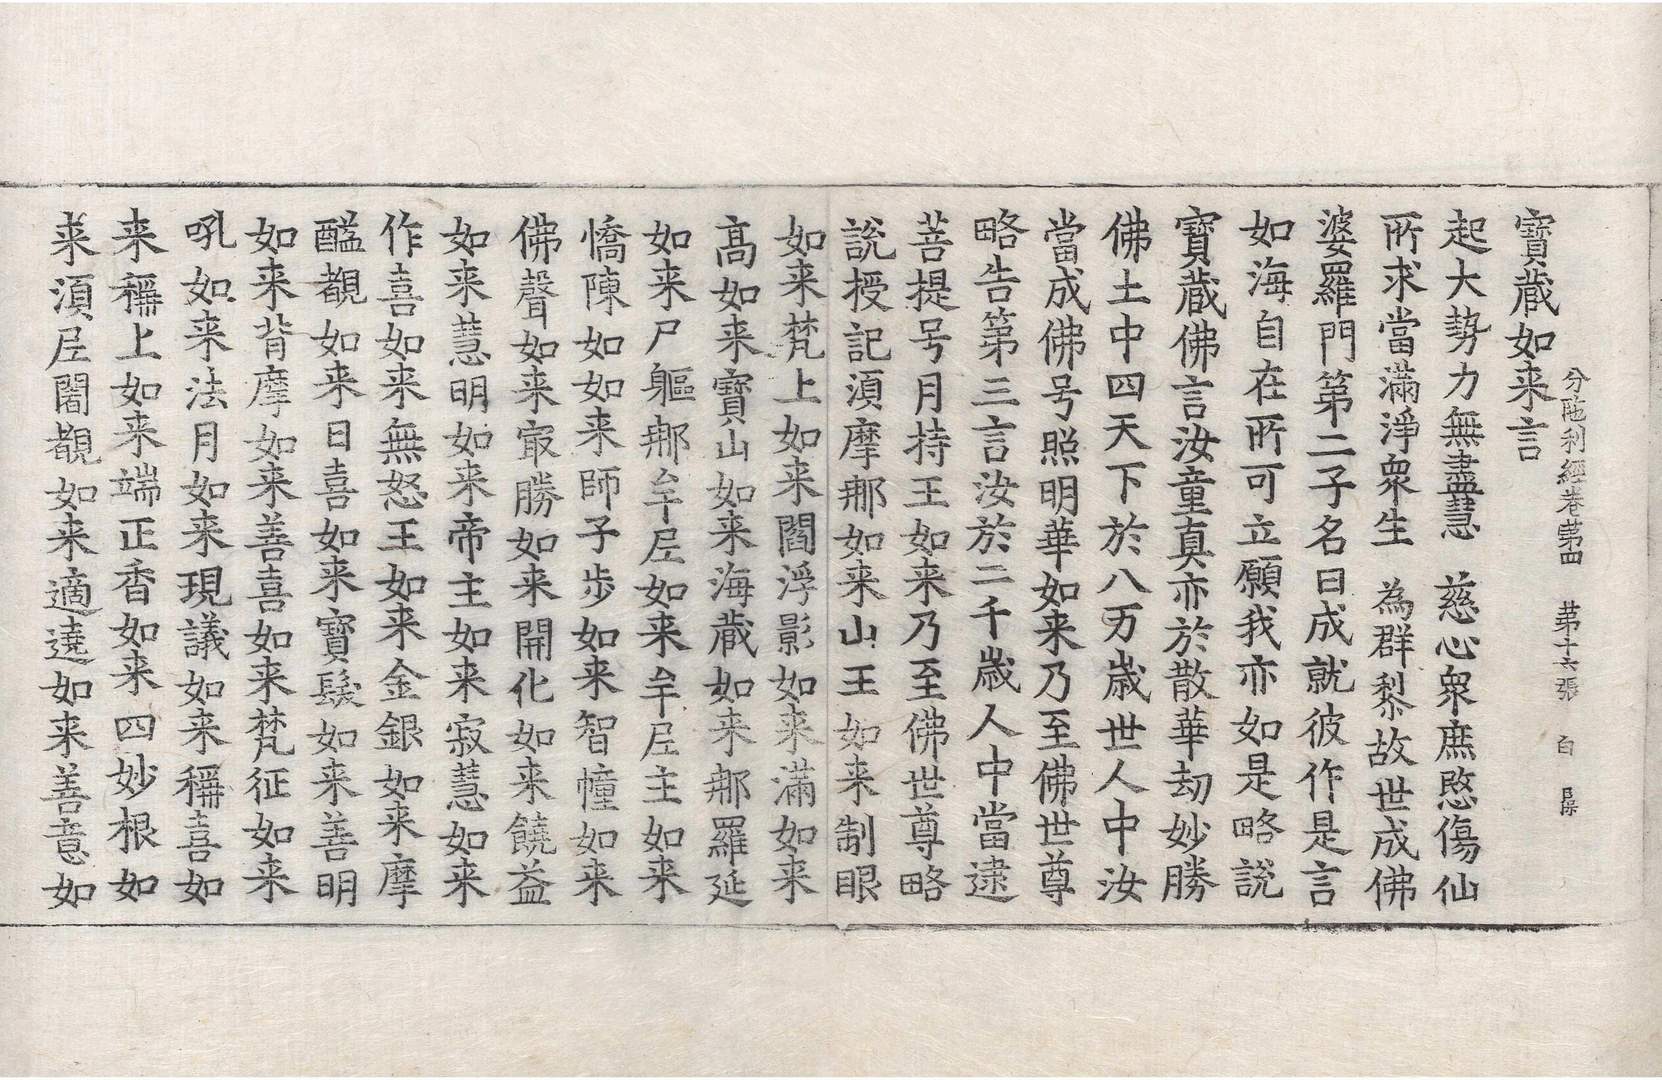 寶蔵如来言
分陁利經卷苐四　苐十六張　白
起大勢力無盡慧　慈心衆庶愍傷仙
所求當滿淨衆生　為群黎故世成佛
婆羅門第二子名曰成就彼作是言
如海自在所可立願我亦如是略說
寶蔵佛言汝童真亦於散華劫妙勝
佛土中四天下於八万歲世人中汝
當成佛号照明華如来乃至佛世尊
略告第三言汝於二千歲人中當逮
菩提号月持王如来乃至佛世尊略
說授記須摩那如来山王如来制眼
如来梵上如来閻浮影如来滿如来
高如来寶山如来海蔵如来那羅延
如来尸軀那牟尼如来牟尼主如来
憍陳如如来師子步如来智幢如来
佛聲如来寂勝如来開化如来饒益
如来慧明如来帝主如来寂慧如来
作喜如来無怒王如来金銀如来摩
醯覩如来日喜如来寶髮如来善明
如来背摩如来善喜如来梵征如来
吼如来法月如来現議如来稱喜如
来稱上如来端正香如来四妙根如
来湏尼闍覩如来適遶如来善意如